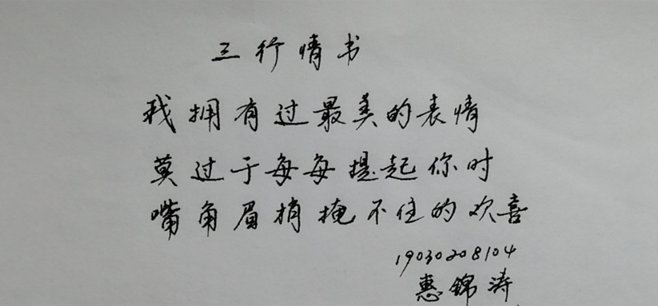 三行情书
我拥有过最美的表情
莫过于每每提起你时
嘴角眉梢掩不住的欢喜
19030208104
惠锦涛